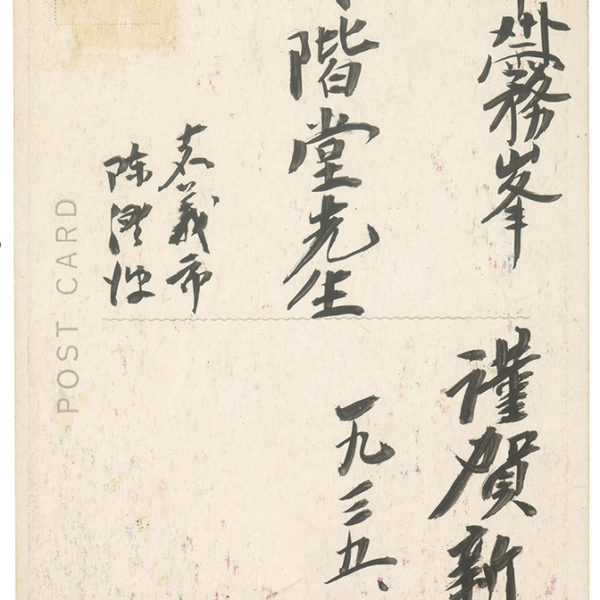 州霧峯
階堂先生
嘉義市
陳澄波
謹賀新
一九三五、
POST CARD